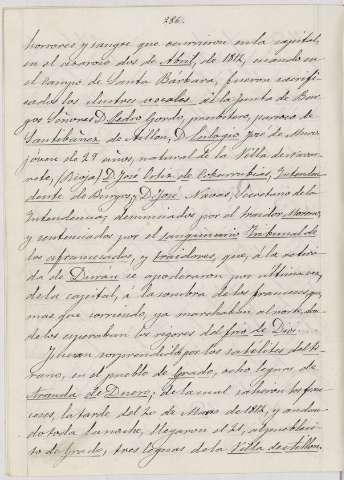 286.
horrores y sangre que ocurrieron en la capital,
en el aciago dos de Abril, de 1812, cuando en
el campo de Santa Bárbara, fueron sacrifi-
cados los ilustres vocales de la Junta de Bur-
gos Señores D. Pedro Gordo, presbítero, párroco de
Santibáñez de Aillon, D. Eulogio José de Muro
jóven de 29 años, natural de la Villa de Nava-
rrete, (Rioja) D. José Ortiz de Covarrubias, Inten
dente de Burgos, D. José Navas, Secretario de la
Intendencia; denunciados por el traidor Moreno,
y sentenciados por el sanguinario Tribunal de
los afrancesados, y traidores, que, á la
da de se apoderaron por última vez,
de la capital, á la sombra de los franceses que,
mas que corriendo, ya marchaban al norte, don-
de les esperaban los rigores del frio de Dios.
Fueron sorprendidos por los satélites del ti-
rano, en el pueblo de Grado, ocho leguas de
Aranda de Duero; de la cual salieron los fran
ceses, la tarde del 20 de Marzo de 1812, y andan-
do toda la noche, llegaron el 21, al pueblecí-
to de Grado, tres leguas de la Villa de Aillon.